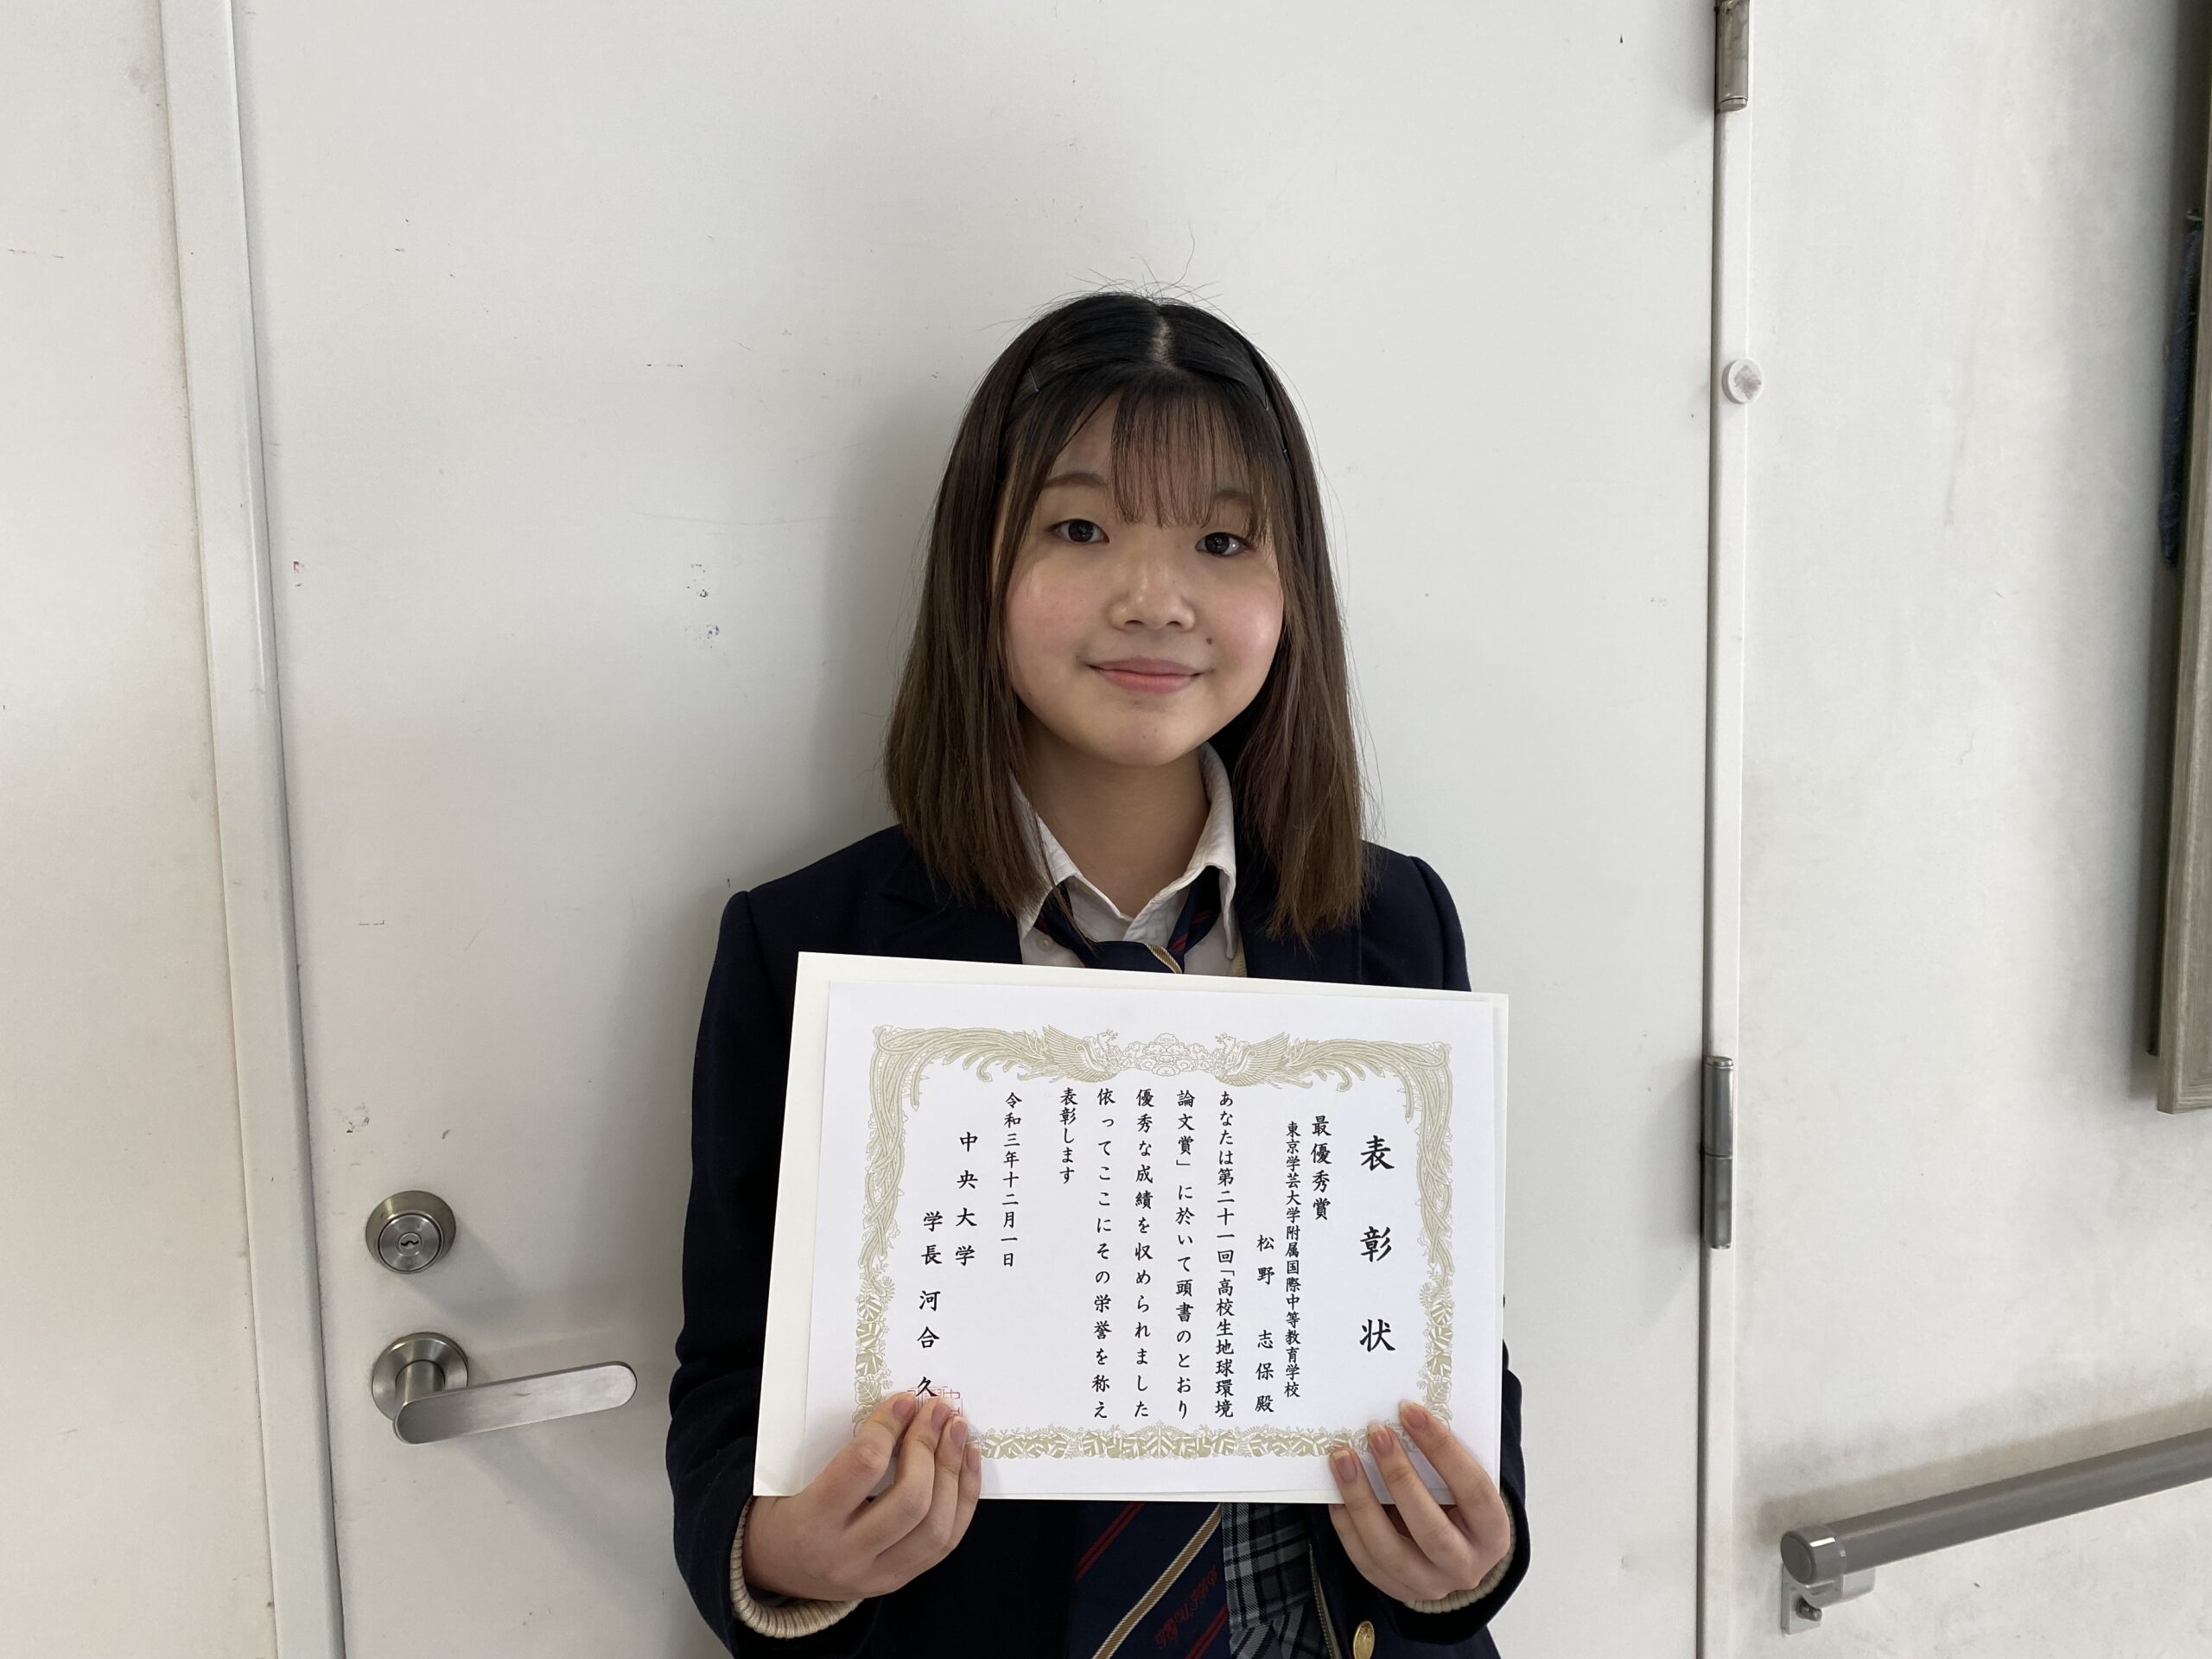 表彰状
最優秀賞
東京学芸大学附属国際中等教育学校
松野 志保 殿
あなたは第二十一回「高校生地球環境
論文賞」に於いて頭書のとおり
優秀な成績を収められました
依ってここにその栄誉を称え
表彰します
令和三年十二月一日
中央大学
学長 河合 久